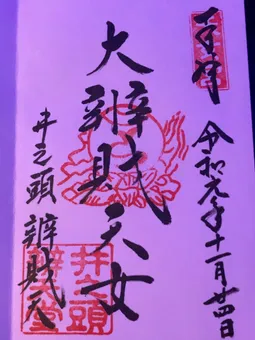 奉拝
令和元年十一月廿四日
大辨財天女
井之頭 辨財天
井之頭
辨財天堂